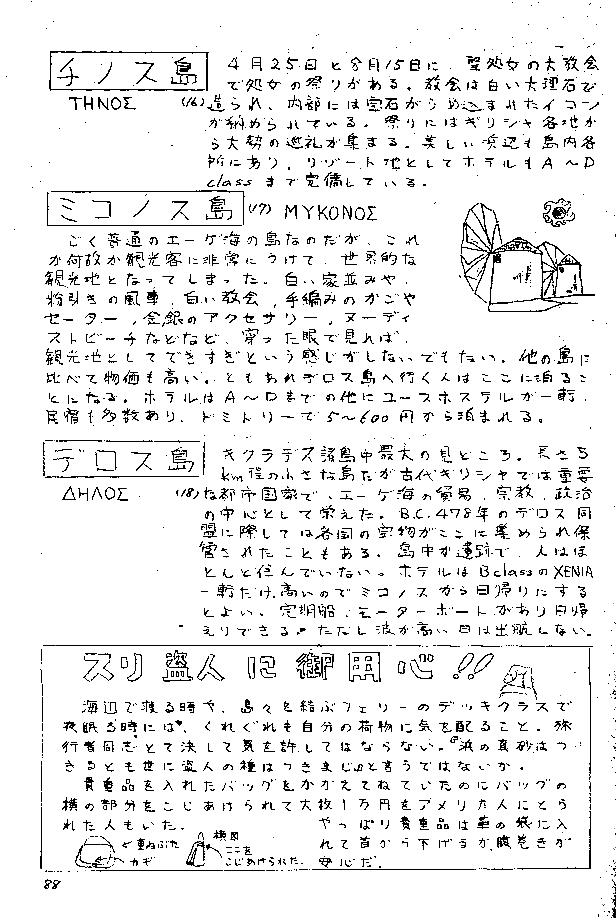 チノス島
ΤΗΝΟΣ
(16)
4月25日と8月15日に、聖処女の大教会
で処女の祭りがある。教会は白い大理石で
造られ、内部には宝石がうめ込まれたイコン
が納められている。祭りにはギリシャ各地か
ら大勢の巡礼が集まる。美しい浜辺も島内各
所にあり、リゾート地としてホテルもA〜D
classまで完備している。
ミコノス島
(17) ΜΥΚΟΝΟΣ
ごく普通のエーゲ海の島なのだが、これ
が何故か観光客に非常にうけて、世界的な
観光地となってしまった。白い家並みや、
粉引きの風車、白い教会、手編みのかごや
セーター、金銀のアクセサリー、ヌーディ
ストビーチなどなど、穿った眼で見れば、
観光地としてできすぎという感じがしないでもない。他の島に
比べて物価も高い。ともあれデロス島へ行く人はここに泊るこ
とになる。ホテルはA〜Dまでの他にユースホステルが一軒、
民宿も多数あり、ドミトリーで5〜600円から泊まれる。
デロス島
ΔΗΛΟΣ
(18)
キクラデス諸島中最大の見どころ。長さ5
km径の小さな島だが古代ギリシャでは重要
な都市国家で、エーゲ海の貿易、宗教、政治
の中心として栄えた。B.C.478年のデロス同
盟に際しては各国の宝物がここに集められ保
管されたこともある。島中が遺跡で、人はほ
とんど住んでいない。ホテルはBclassのXENIA
一軒だけ、高いのでミコノスから日帰りにする
とよい。定期船、モーターボートがあり日帰
えりできる。ただし波が高い日は出航しない。
スリ盗人に御用心!!
海辺で寝る時や、島々を結ぶフェリーのデッキクラスで
夜眠る時には、くれぐれも自分の荷物に気を配ること。旅
行者同志とて決して気を許してはならない。『浜の真砂はつ
きるとも世に盗人の種はつきまじ』と言うではないか。
貴重品を入れたバッグをかかえてねていたのにバッグの
横の部分をこじあけられて大枚1万円をアメリカ人にとら
れた人もいた。
やっぱり貴重品は革の袋に入
れて首から下げるか腹巻きが
安心だ。
重ねぶた
カギ
横図
ここを
こじあけられた。
88